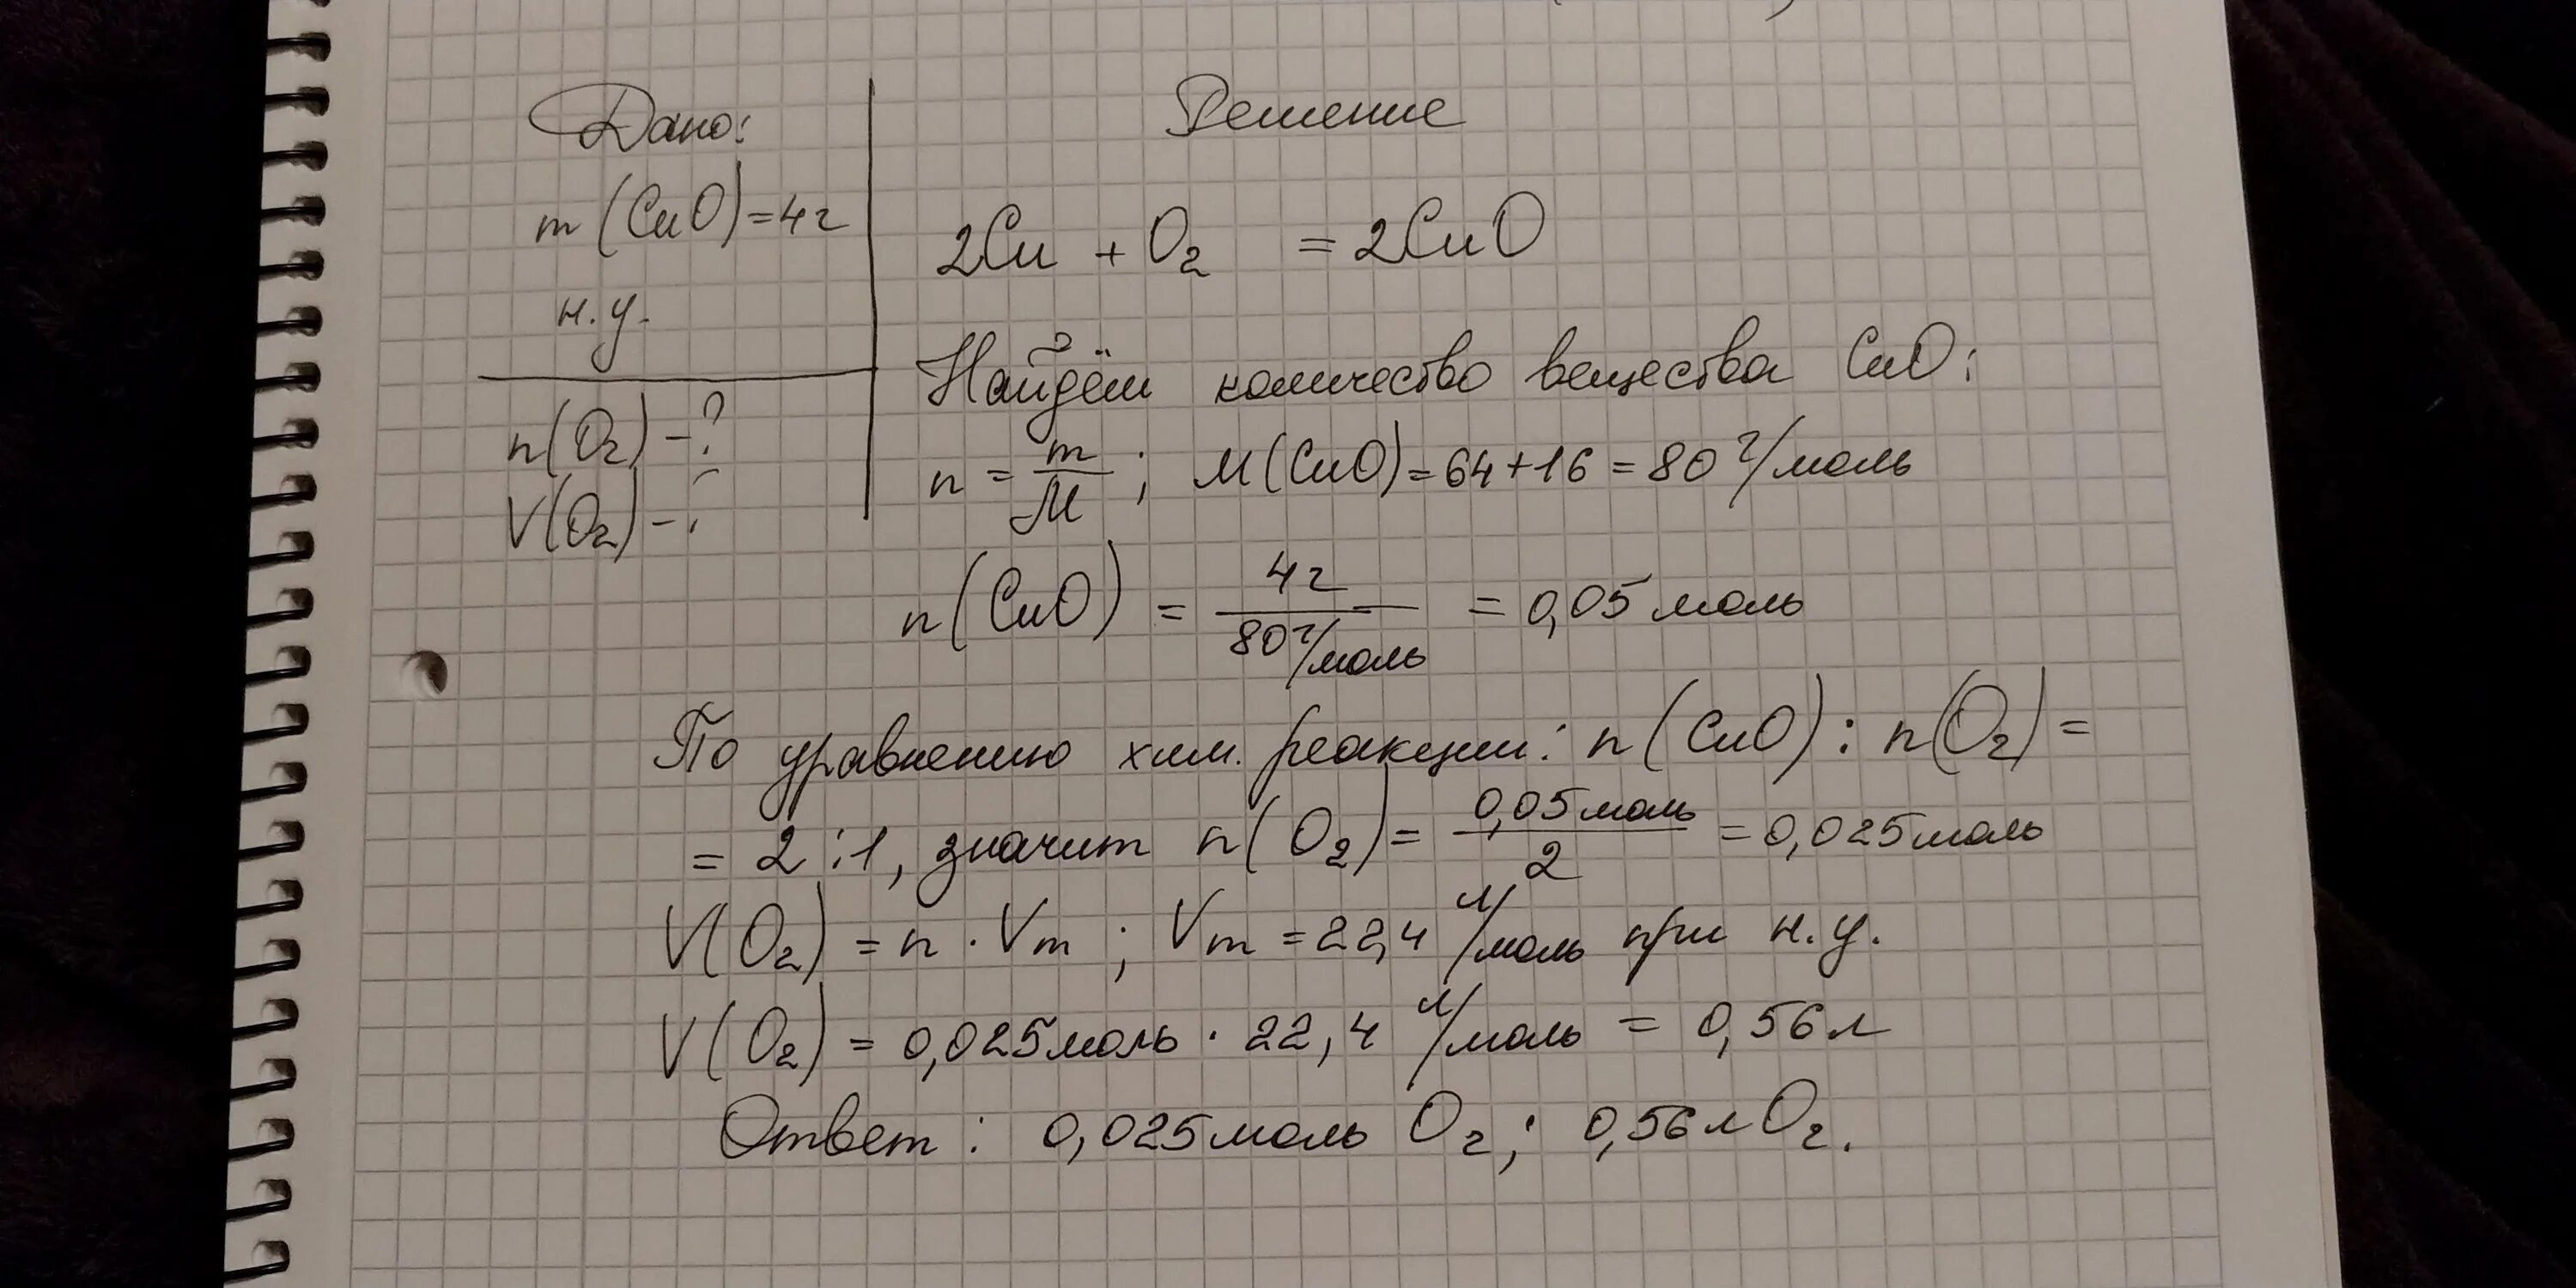 Дано:
m (CuO) = 4г
н.у.
n(O₂) - ?
V(O₂) - ?
Решение
2Cu + O₂ = 2CuO
Найдём количество вещества CuO:
n = m/M ; M(CuO) = 64 + 16 = 80 г/моль
n(CuO) = 4г / 80 г/моль = 0,05 моль
По уравнению хим. реакции: n(CuO) : n(O₂) =
= 2 : 1, значит n(O₂) = 0,05 моль / 2 = 0,025 моль
V(O₂) = n · Vm ; Vm = 22,4 л/моль при н.у.
V(O₂) = 0,025 моль · 22,4 л/моль = 0,56 л
Ответ : 0,025 моль O₂ ; 0,56 л O₂.